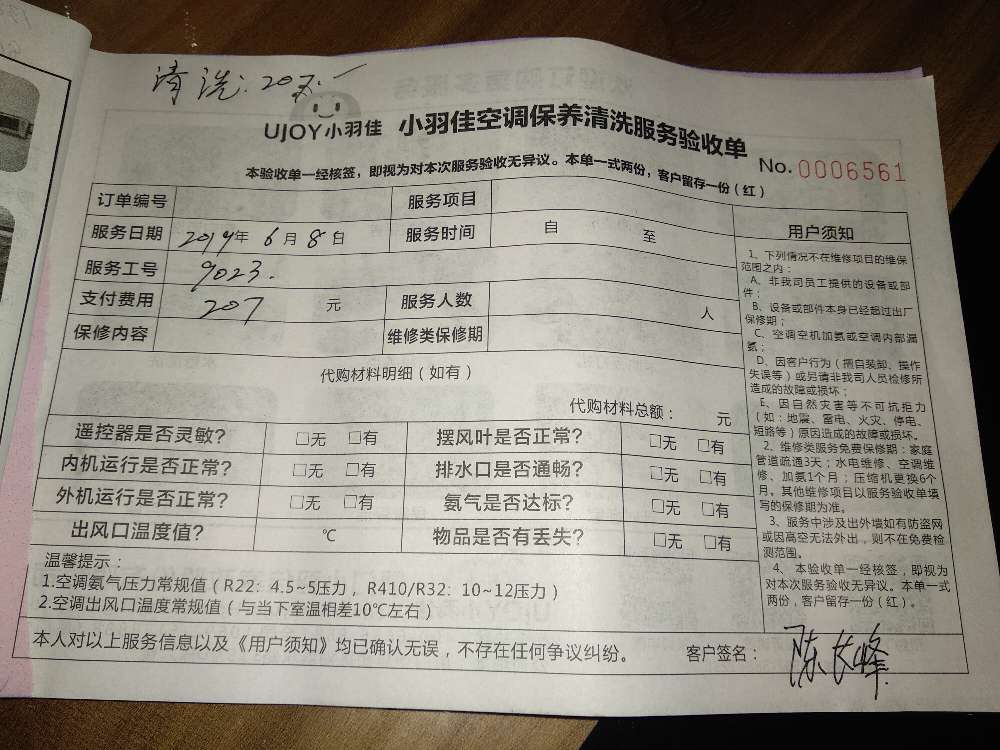 清洗:207元
UJOY小羽佳 小羽佳空调保养清洗服务验收单
No.0006561
本验收单一经核签，即视为对本次服务验收无异议。本单一式两份，客户留存一份（红）
订单编号 服务项目
服务日期 2019年 6月 8日 服务时间 自 至
服务工号 9023.
支付费用 207 元 服务人数 人
保修内容 维修类保修期
代购材料明细（如有）
代购材料总额： 元
遥控器是否灵敏？ □无 □有 摆风叶是否正常？ □无 □有
内机运行是否正常？ □无 □有 排水口是否通畅？ □无 □有
外机运行是否正常？ □无 □有 氨气是否达标？ □无 □有
出风口温度值？ ℃ 物品是否有丢失？ □无 □有
温馨提示：
1.空调氨气压力常规值（R22：4.5~5压力，R410/R32：10~12压力）
2.空调出风口温度常规值（与当下室温相差10℃左右）
本人对以上服务信息以及《用户须知》均已确认无误，不存在任何争议纠纷。 客户签名： 陈长峰
用户须知
1、下列情况不在维修项目的维保
范围之内：
A、非我司员工提供的设备或部
件；
B、设备或部件本身已经超过出厂
保修期；
C、空调空机加氨或空调内部漏
氨；
D、因客户行为（擅自装卸、操作
失误等）或另请非我司人员检修所
造成的故障或损坏；
E、因自然灾害等不可抗拒力
（如：地震、雷电、火灾、停电、
短路等）原因造成的故障或损坏。
2、维修类服务免费保修期：家庭
管道疏通3天；水电维修、空调维
修、加氨1个月；压缩机更换6个
月。其他维修项目以服务验收单填
写的保修期为准。
3、服务中涉及出外墙如有防盗网
或因高空无法外出，则不在免费检
测范围。
4、本验收单一经核签，即视为
对本次服务验收无异议。本单一式
两份，客户留存一份（红）。